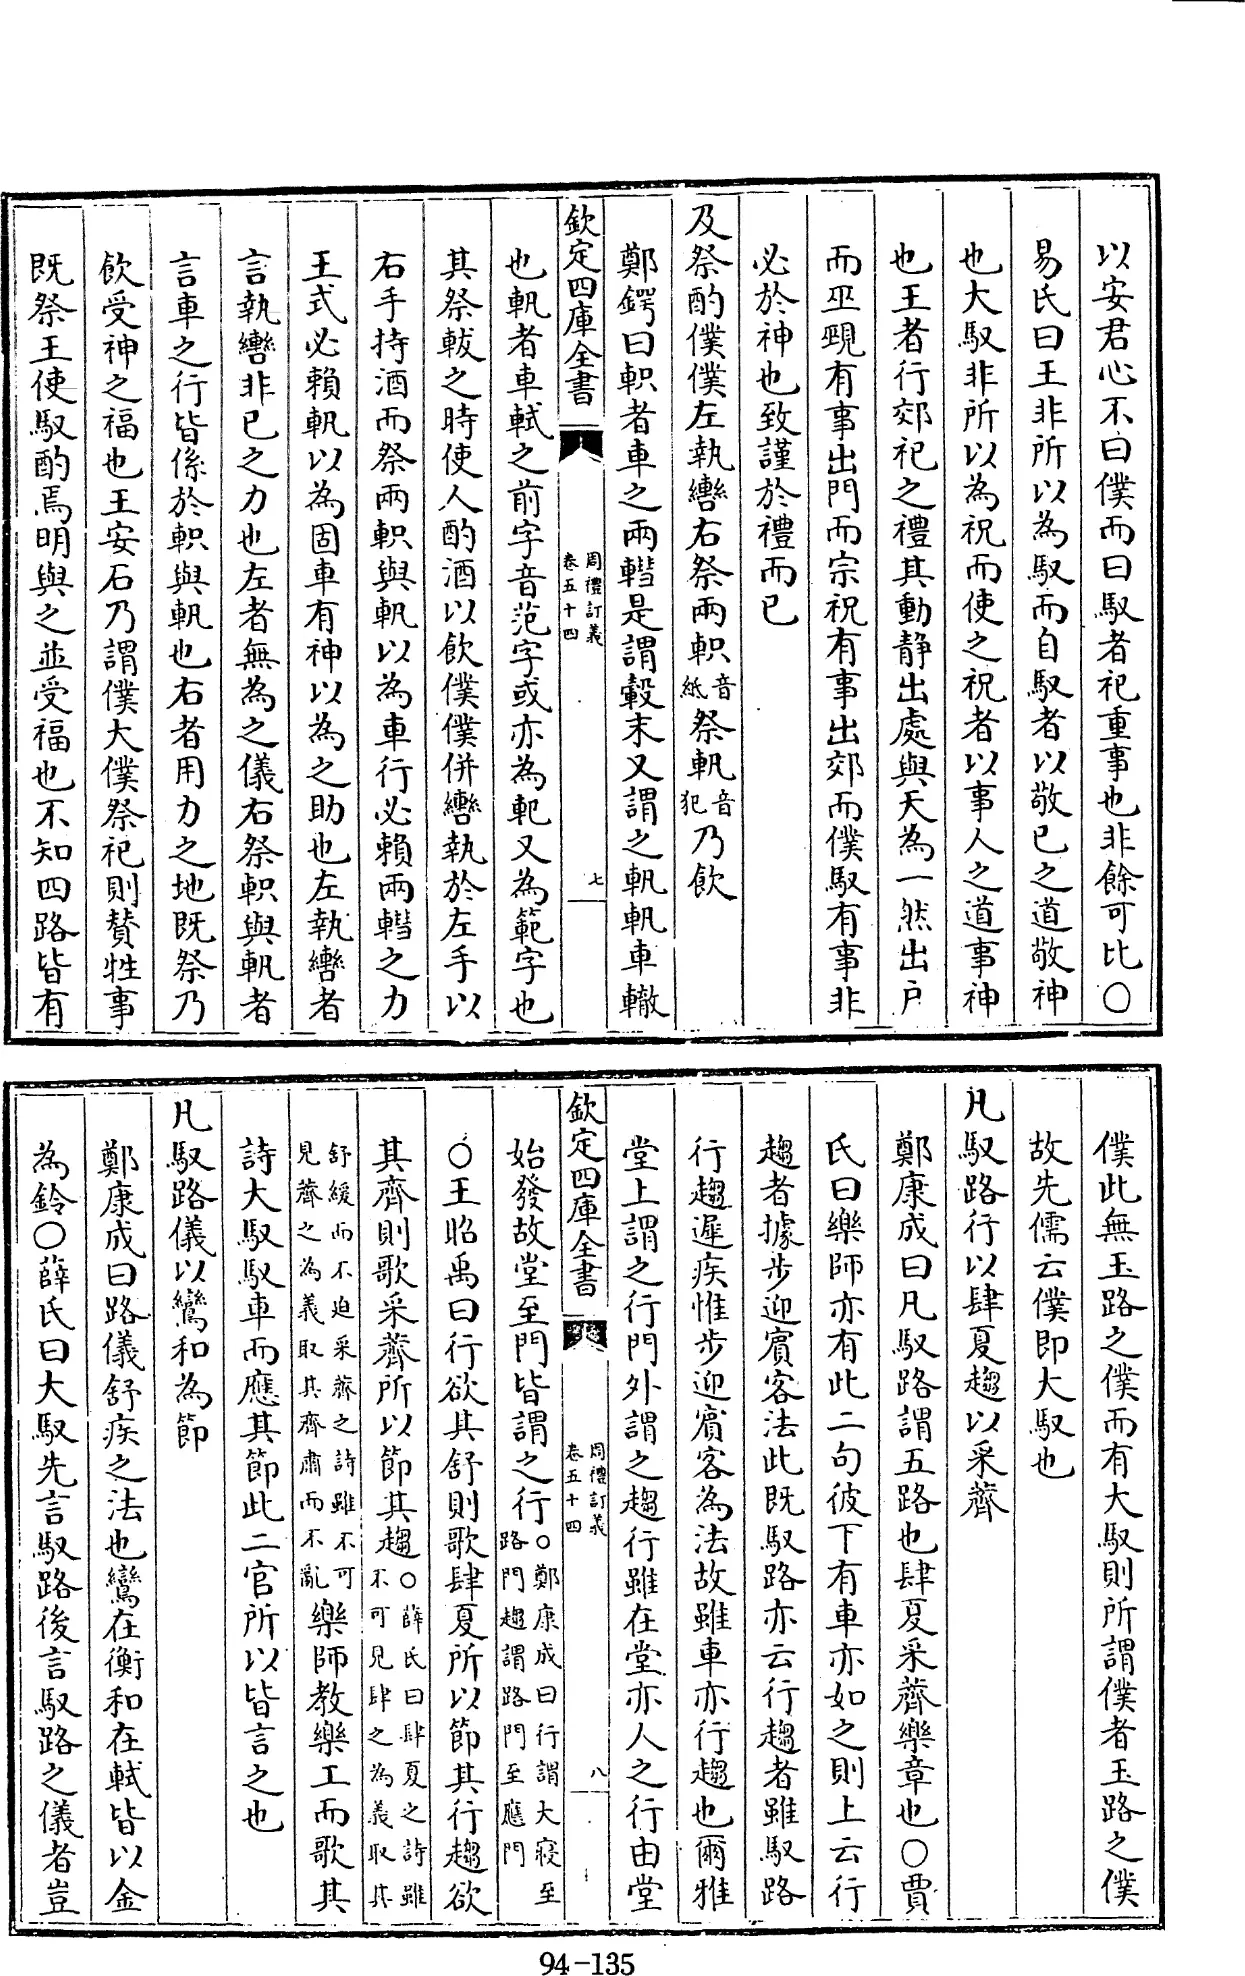 以安君心不曰僕而曰馭者祀重事也非餘可比〇
易氏曰王非所以為馭而自馭者以敬已之道敬神
也大馭非所以為祝而使之祝者以事人之道事神
也王者行郊祀之禮其動靜出處與天為一然出戸
而巫覡有事出門而宗祝有事出郊而僕馭有事非
必於神也致謹於禮而已
及祭酌僕僕左執轡右祭兩軹音紙祭軓音犯乃飲
鄭鍔曰軹者車之兩轊是謂轂末又謂之軓軓車轍
欽定四庫全書
周禮訂義
卷五十四
七
也軓者車軾之前字音范字或亦為軋又為範字也
其祭軷之時使人酌酒以飲僕僕併轡執於左手以
右手持酒而祭兩軹與軓以為車行必賴兩轊之力
王式必賴軓以為固車有神以為之助也左執轡者
言執轡非已之力也左者無為之儀右祭軹與軓者
言車之行皆係於軹與軓也右者用力之地既祭乃
飲受神之福也王安石乃謂僕大僕祭祀則贊牲事
既祭王使馭酌焉明與之並受福也不知四路皆有
僕此無玉路之僕而有大馭則所謂僕者玉路之僕
故先儒云僕即大馭也
凡馭路行以肆夏趨以采薺
鄭康成曰凡馭路謂五路也肆夏采薺樂章也〇賈
氏曰樂師亦有此二句彼下有車亦如之則上云行
趨者據步迎賓客法此既馭路亦云行趨者雖馭路
行趨遲疾惟步迎賓客為法故雖車亦行趨也爾雅
堂上謂之行門外謂之趨行雖在堂亦人之行由堂
欽定四庫全書
周禮訂義
卷五十四
八
始發故堂至門皆謂之行〇鄭康成曰行謂大寢至路門趨謂路門至應門
〇王昭禹曰行欲其舒則歌肆夏所以節其行趨欲
其齊則歌采薺所以節其趨〇薛氏曰肆夏之詩雖不可見肆之為義取其
舒緩而不迫采薺之詩雖不可見薺之為義取其齊肅而不亂樂師教樂工而歌其
詩大馭馭車而應其節此二官所以皆言之也
凡馭路儀以鸞和為節
鄭康成曰路儀舒疾之法也鸞在衡和在軾皆以金
為鈴〇薛氏曰大馭先言馭路後言馭路之儀者豈
94-135